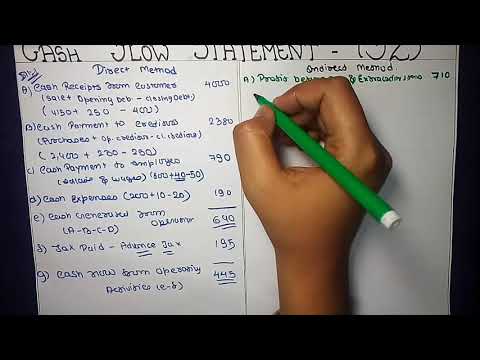 CASH FLOW STATEMENT - (S2)
Direct Method
A) Cash Receipts from Customer 4000
(Sale + Opening Deb - Closing Debt)
(4150 + 250 - 400)
B) Cash Payment to Creditors 2380
(Purchases + Op. creditors - Cl. creditors)
(2,400 +
C) Cash Payment to Employees 790
(Salaries & Wages) (800+40-50)
D) Cash Expenses (200+10-20) 190
e) Cash Generated from Operation 640
(A-B-C-D)
f) Tax Paid - Advance Tax 195
g) Cash flow from Operating 445
Activities (e-f)
Indirect Method
A) Profit before & Extraordinary 710